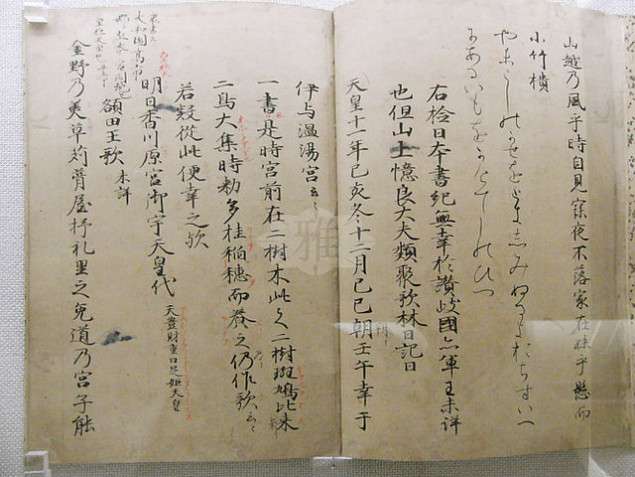 山越乃風乎時自見寐夜不落家在妹乎懸而
小竹櫃
やまこしのかせをときしみぬるよおちすいへ
なるいもをかけてしのひつ
右検日本書紀無幸於讃岐國亦軍王未詳
也但山上憶良大夫類聚歌林日記曰
天皇十一年己亥冬十二月己巳朔壬午幸于
伊与温湯宮云々
一書是時宮前在二樹木此之二樹斑鳩比米
二鳥大集時勅多挂稲穂而養之仍作歌云々
若疑從此便幸之歟
明日香川原宮御宇天皇代 天豊財重日足姫天皇
額田王歌 未詳
金野乃美草苅葺屋杼礼里之兎道乃宮子能
雅